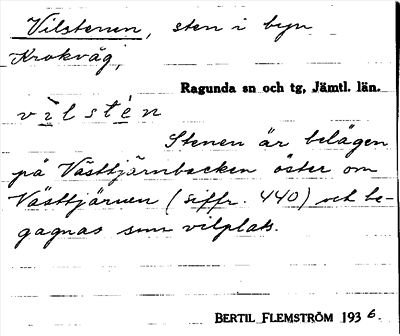 Vilstenen, sten i byn
Krokvåg,
Ragunda sn och tg, Jämtl. län.
vìlstén
Stenen är belägen
på Västtjärnbacken öster om
Västtjärnen (siffr. 440) och be-
gagnas som vilplats.
BERTIL FLEMSTRÖM 1936.